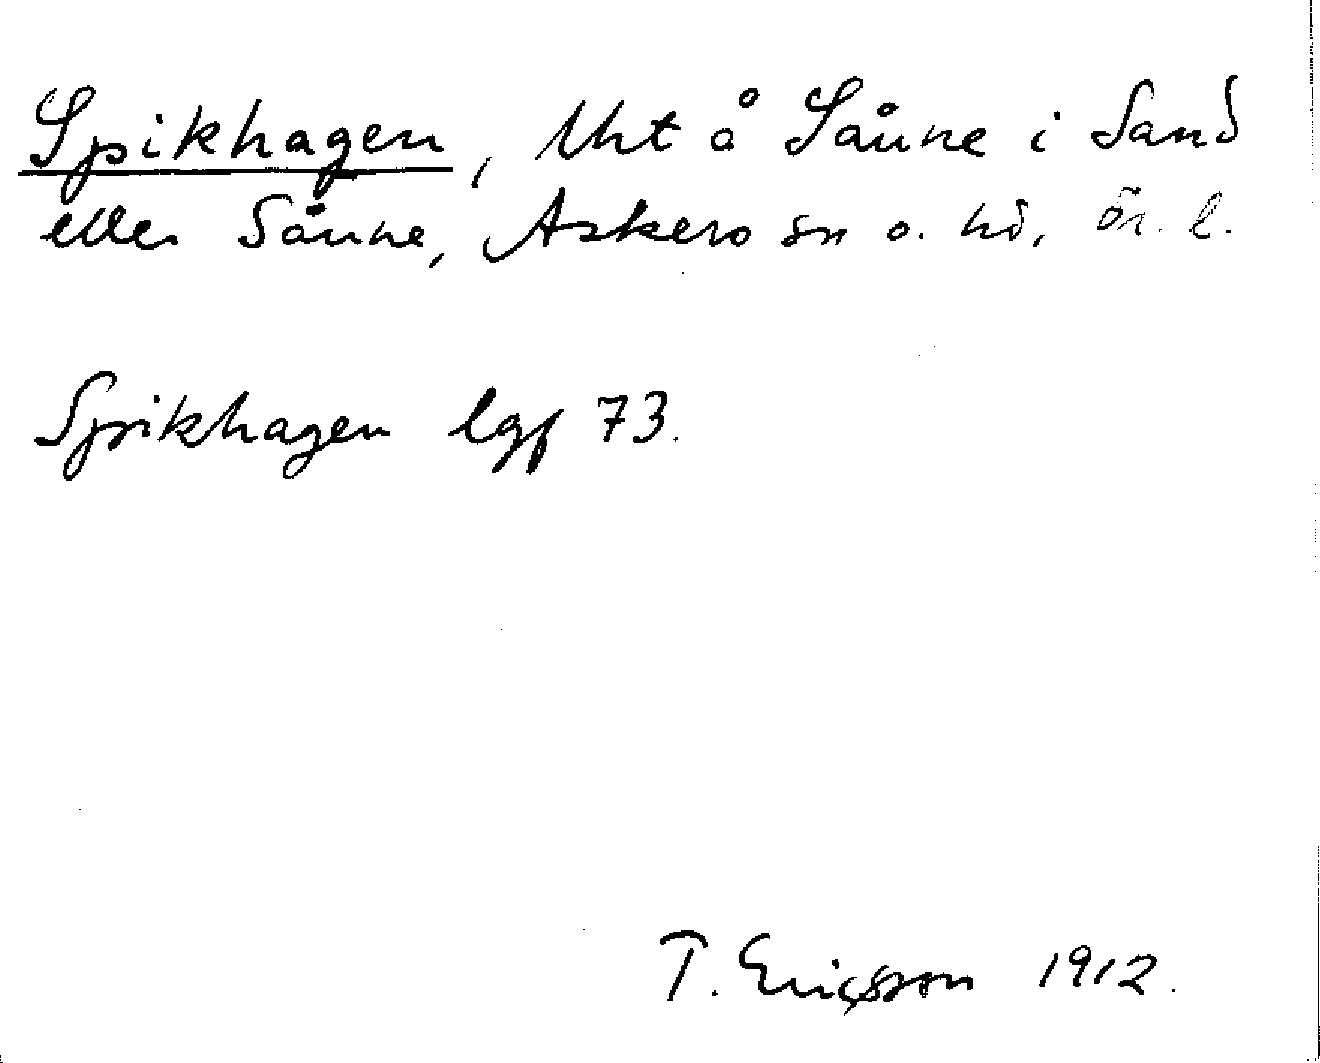 Spikhagen, Uht å Såune i Sand
eller Såune, Askers sn o. hd, Ör. l.
Spikhagen lgf 73.
T. Ericsson 1912.